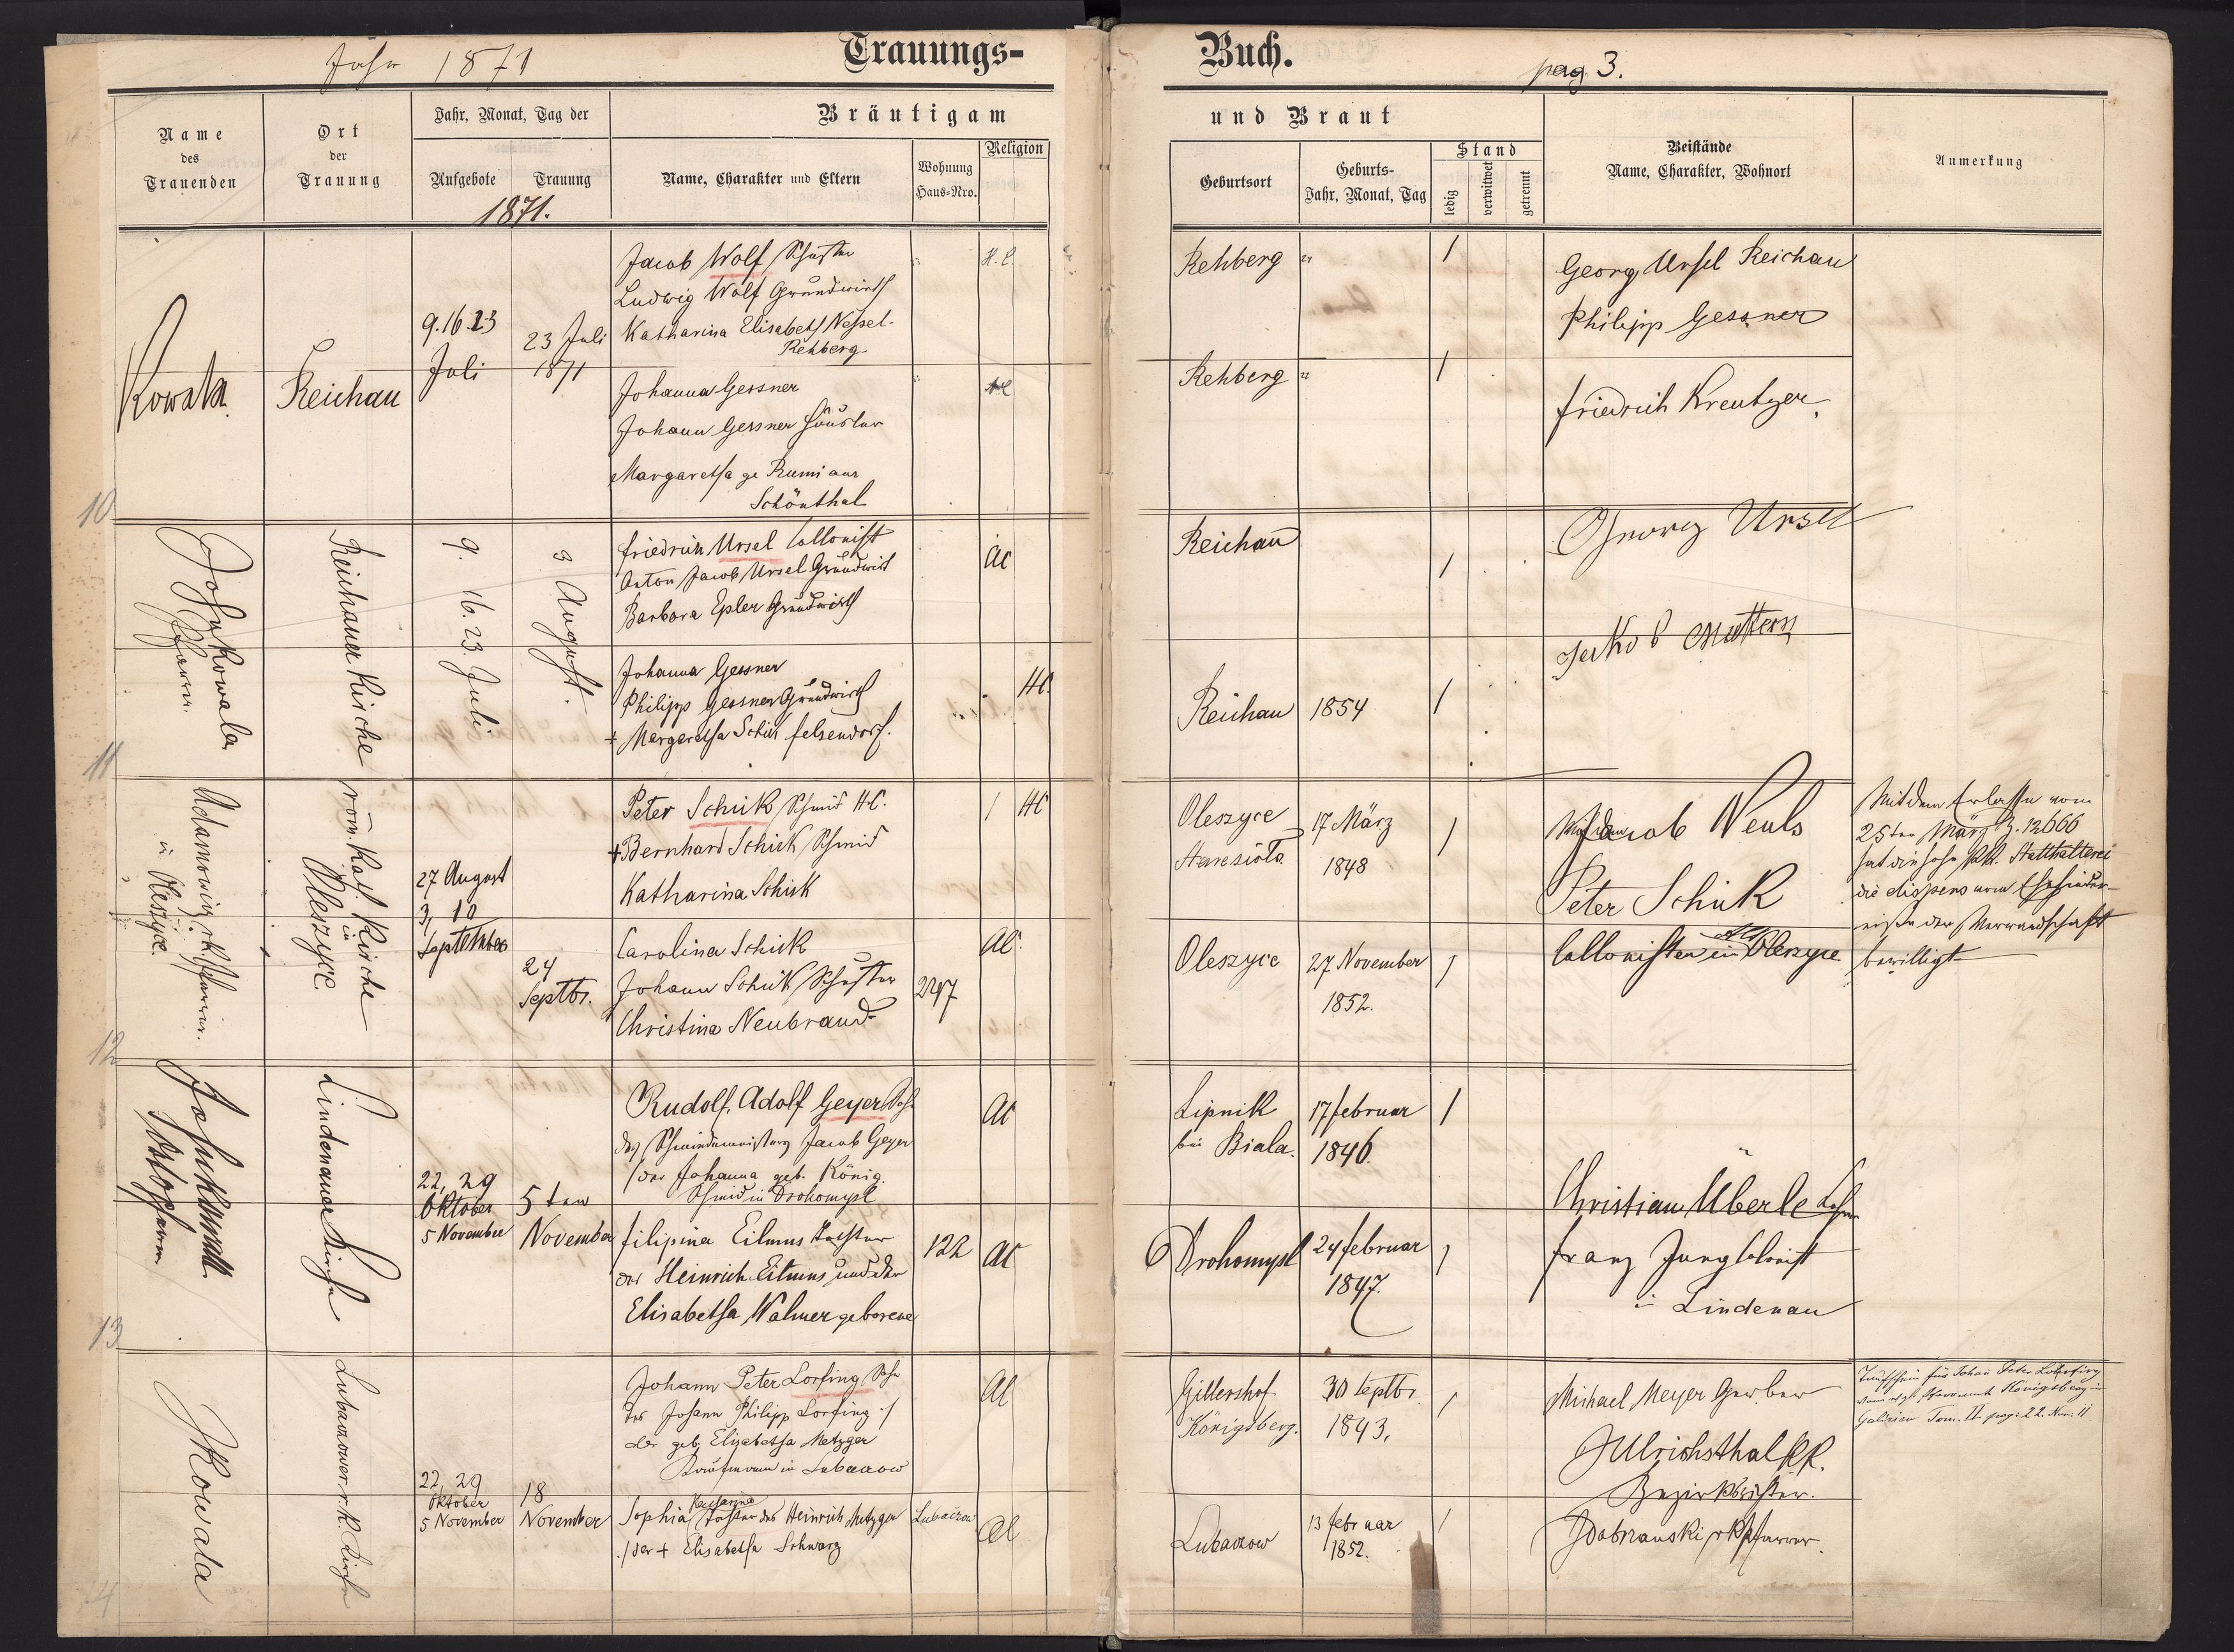 Jahr 1871
Trauungs-
Buch.
pag. 3.
Name
des
Trauenden
Ort
der
Trauung
Jahr, Monat, Tag der
Aufgebote
Trauung
1871.
Bräutigam
Name, Charakter und Eltern
Wohnung
Haus-Nro.
Religion
und Braut
Geburtsort
Geburts-
Jahr, Monat, Tag
Stand
ledig
verwitwet
getrennt
Beistände
Name, Charakter, Wohnort
Anmerkung
10
Reichau
9. 16. 23
Juli
23 Juli
1871
Jacob Wolf Schuster
Ludwig Wolf Grundwirth
Katharina Elisabeth Nessel.
Rehberg.
H. C.
Rehberg
Georg Ursel Reichau
Philipp Gessner
Johanna Gessner
Johann Gessner Häusler
Margaretha ge Rumi aus
Schönthal
Rehberg
Friedrich Kreutzer.
11
Joh Kowala
Pfarrer.
Reichauer Kirche
9. 16. 23. Juli.
3 August
Friedrich Ursel Collonist
Anton Jacob Ursel Grundwirt
Barbara Epler Grundwirth
AC
Reichau
Georg Ursel
Johanna Gessner
Philipp Gessner Grundwirth
+ Margaretha Schik Felsendorf.
HC.
Reichau
1854
Jakob Mattern
12
röm. Kath. Kirche
in
Oleszyce
27 August
3, 10
September
24
Septbr.
Peter Schik Schmid HC.
+ Bernhard Schick Schmid
Katharina Schick
HC
Oleszyce
17 März
1848
Jacob Neuls
Peter Schik
Mit dem Erlasse vom
25ten März Z. 12666
hat die hohe kk. Statthalterei
die dispens vom Ehehinder-
nisse der Verwandschaft
bewilligt
Carolina Schick
Johann Schik Schuster
Christina Neubrand
247
AC.
Oleszyce
27 November
1852.
Collonisten in Oleszyce
13
Lindenauer Kirche
22, 29
Oktober
5 November
5ten
November
Rudolf, Adolf Geyer Sohn
des Schmiedemeisters Jacob Geyer
der Johanna geb. König.
Schmid in Drohomysl
AC
Lipnik
bei Biala.
17 Februar
1846.
Christian Überle
Filipina Eilmns Tochter
des Heinrich Eilmns und der
Elisabetha Walmer geborene
122
AC
Drohomysl
24 Februar
1847.
Franz Jung Colonist
in Lindenau
J Kowala
Lubaczower r. k. Kirche
22, 29
Oktober
5 November
18
November
Johann Peter Lorfing Sohn
des Johann Philipp Lorfing
der geb. Elisabetha Metzger
Kaufmann in Lubaczow
AC
Gillershof
Königsberg.
30 Septbr.
1843.
Michael Meyer Gerber
Ulrichsthal kk.
Bezirksrichter.
Taufschein für Johan Peter
Königsberg in
Galizien Tom. II pag: 22. Num. 11
Katharina
Sophia Tochter des Heinrich Metzger
der + Elisabetha Schwarz
Lubaczow
AC
Lubaczow
13 Februar
1852.